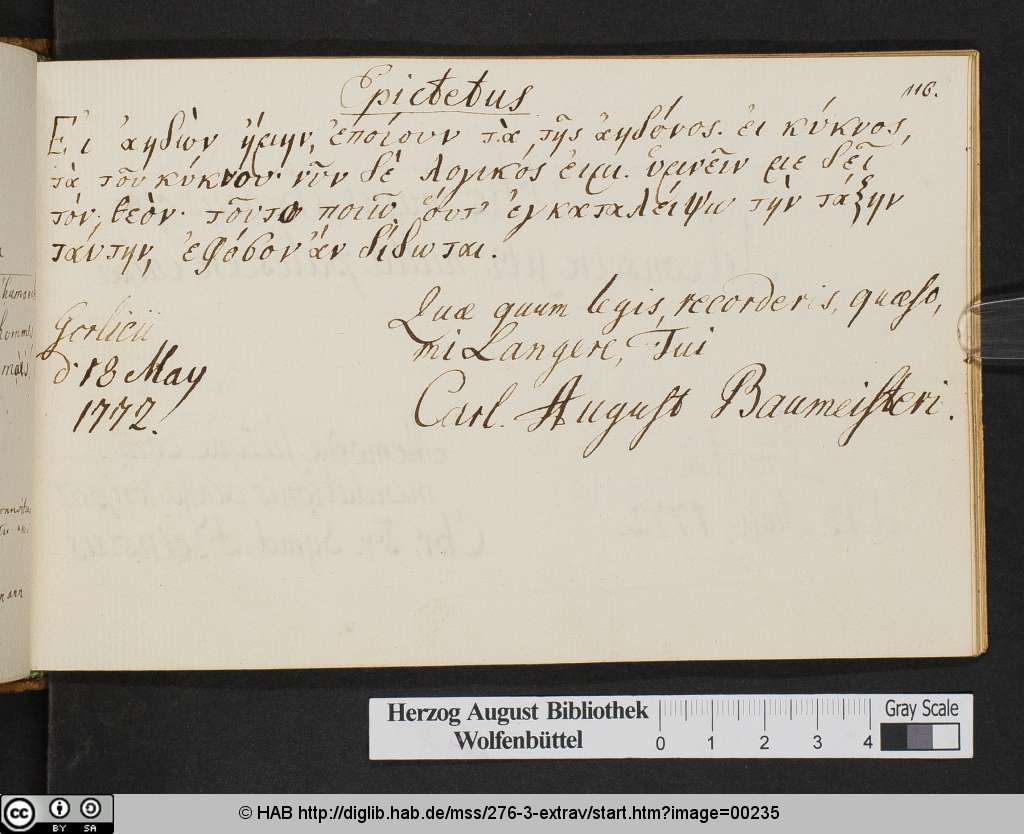 Epictetus
116.
Εἰ ἀηδὼν ἤμην, ἐποίουν τὰ τῆς ἀηδόνος. ἐι κύκνος,
τὰ τοῦ κύκνου· νῦν δὲ λογικός ἐιμι. ὑμνεῖν με δεῖ
τὸν θεὸν· τοῦτο ποιῶ, ὀυτ' ἐγκαταλείψω τὴν τάξην
ταύτην, ἐφόσον ἀν δίδωται.
Gorlicii
d 13 May
1772.
Quæ quum legis, recorderis, quæso,
mi Langere, Tui
Carl. August Baumeisteri.
Herzog August Bibliothek
Wolfenbüttel
0 1 2 3 4
Gray Scale
cc BY SA
© HAB http://diglib.hab.de/mss/276-3-extrav/start.htm?image=00235